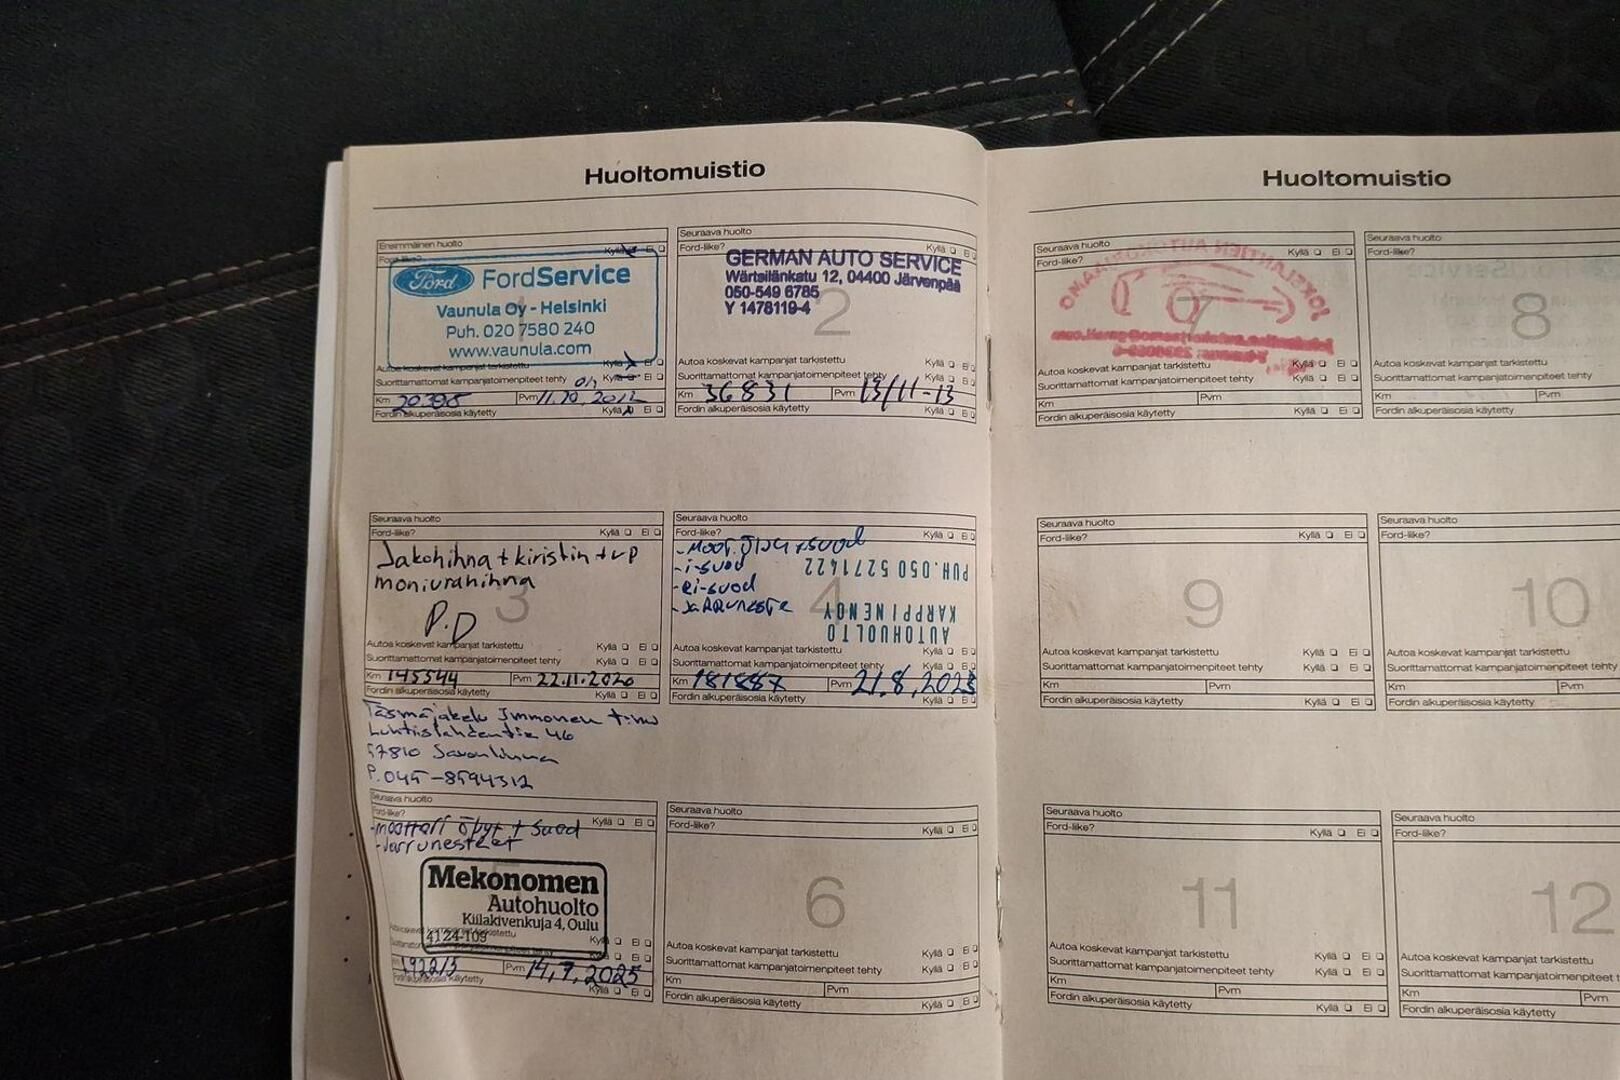 Huoltomuistio
Ensimmäinen huolto
Ford-liike? Kyllä Ei
Ford FordService
Vaunula Oy - Helsinki
Puh. 020 7580 240
www.vaunula.com
1
Autoa koskevat kampanjat tarkistettu Kyllä Ei
Suorittamattomat kampanjatoimenpiteet tehty Kyllä Ei
Km 20395 Pvm 11.10.2012
Fordin alkuperäisosia käytetty Kyllä Ei
Seuraava huolto
Ford-liike? Kyllä Ei
GERMAN AUTO SERVICE
Wärtsilänkatu 12, 04400 Järvenpää
050-549 6785
Y 1478119-4
2
Autoa koskevat kampanjat tarkistettu Kyllä Ei
Suorittamattomat kampanjatoimenpiteet tehty Kyllä Ei
Km 36831 Pvm 13/11-13
Fordin alkuperäisosia käytetty Kyllä Ei
Seuraava huolto
Ford-liike? Kyllä Ei
Jakohihna + kiristin + vp
moniurahihna
3
P.D
Autoa koskevat kampanjat tarkistettu Kyllä Ei
Suorittamattomat kampanjatoimenpiteet tehty Kyllä Ei
Km 145544 Pvm 22.11.2020
Fordin alkuperäisosia käytetty Kyllä Ei
Täsmäjakelu Immonen timo
46
57810 Savonlinna
P. 045-8594312
Seuraava huolto
Ford-liike? Kyllä Ei
-i-suod
-ri-suod
-jarruneste
AUTOHUOLTO
KARPPINEN OY
PUH. 050 5271422
4
Autoa koskevat kampanjat tarkistettu Kyllä Ei
Suorittamattomat kampanjatoimenpiteet tehty Kyllä Ei
Km 181887 Pvm 21.8.2023
Fordin alkuperäisosia käytetty Kyllä Ei
Seuraava huolto
Ford-liike? Kyllä Ei
-moottori öljyt + suod
-Jarrunesteet
Mekonomen
Autohuolto
Kiilakivenkuja 4, Oulu
4124-109
Kyllä Ei
192213 Pvm 14.7.2025
Kyllä Ei
Seuraava huolto
Ford-liike? Kyllä Ei
6
Autoa koskevat kampanjat tarkistettu Kyllä Ei
Suorittamattomat kampanjatoimenpiteet tehty Kyllä Ei
Km Pvm
Fordin alkuperäisosia käytetty Kyllä Ei
Huoltomuistio
Seuraava huolto
Ford-liike? Kyllä Ei
7
Autoa koskevat kampanjat tarkistettu Kyllä Ei
Suorittamattomat kampanjatoimenpiteet tehty Kyllä Ei
Km Pvm
Fordin alkuperäisosia käytetty Kyllä Ei
Seuraava huolto
Ford-liike?
8
Autoa koskevat kampanjat tarkistettu
Suorittamattomat kampanjatoimenpiteet tehty
Km Pvm
Fordin alkuperäisosia käytetty
Seuraava huolto
Ford-liike? Kyllä Ei
9
Autoa koskevat kampanjat tarkistettu Kyllä Ei
Suorittamattomat kampanjatoimenpiteet tehty Kyllä Ei
Km Pvm
Fordin alkuperäisosia käytetty Kyllä Ei
Seuraava huolto
Ford-liike?
10
Autoa koskevat kampanjat tarkistettu
Suorittamattomat kampanjatoimenpiteet
Km Pvm
Fordin alkuperäisosia käytetty
Seuraava huolto
Ford-liike? Kyllä Ei
11
Autoa koskevat kampanjat tarkistettu Kyllä Ei
Suorittamattomat kampanjatoimenpiteet tehty Kyllä Ei
Km Pvm
Fordin alkuperäisosia käytetty Kyllä Ei
Seuraava huolto
Ford-liike?
12
Autoa koskevat kampanjat tarkistettu
Suorittamattomat kampanjatoimenpiteet
Km Pvm
Fordin alkuperäisosia käytetty